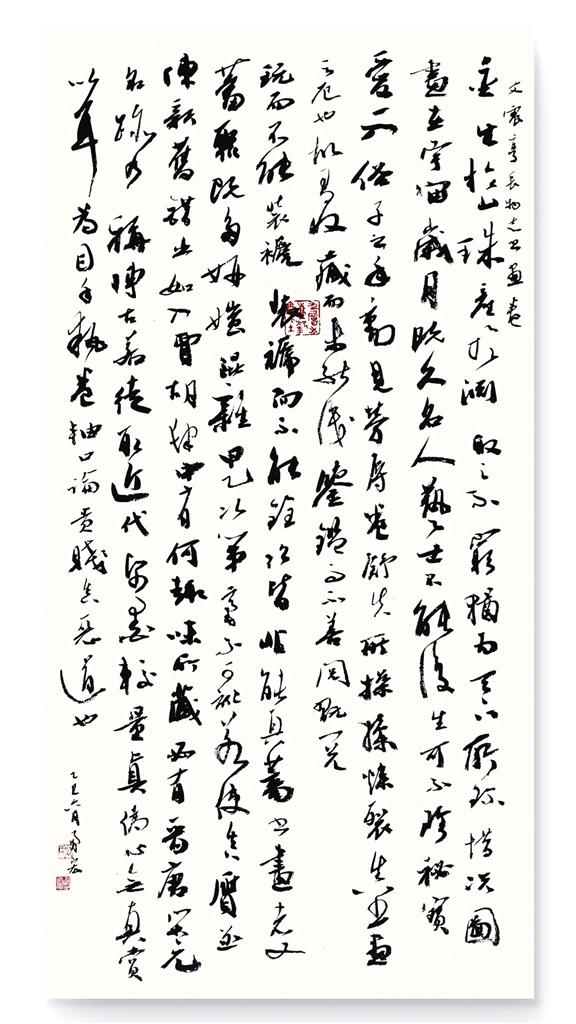 文震亨長物志書畫卷
金生於山珠產於淵取之不窮猶為天下所珍惜況圖
畫在宇宙歲月既久名人藝士不能復生可不珍秘寶
愛一入俗子之手動見勞辱卷舒失所操揉燥裂真書畫
之厄也故有收藏而未能識鑒鑑而不善閱翫閱
玩而不能裝褫裝褫而不能銓次皆非能真蓄書畫者又
蓄聚既多妍媸混雜甲乙次第毫不可訛若使真贗並
陳新舊錯出如入賈胡肆中有何趣味所藏必有晉唐宋元
名跡乃稱博古若徒取近代紙墨較量真偽心無真賞
以耳為目手執卷軸口論貴賤真惡道也
乙巳六月